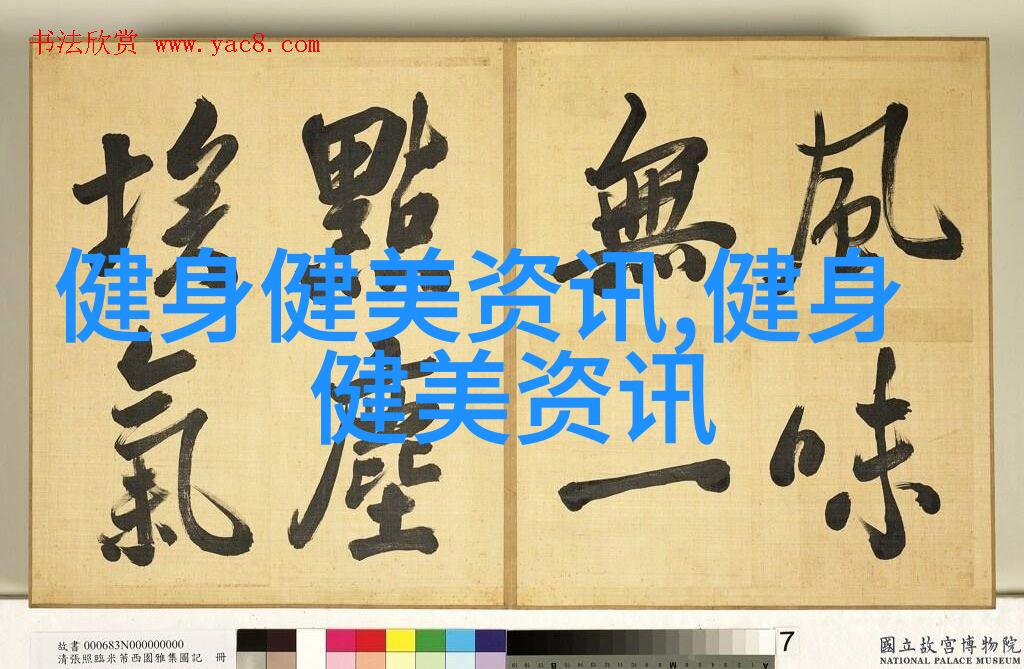 书法欣赏 www.yac8.com
風味
無一
點塵
埃氣
健身健美资讯,健身
健美资讯
故書 000683N000000000
清張照臨米芾西園雅集圖記 冊
7
國立故宮博物院
NATIONAL PALACE MUSEUM